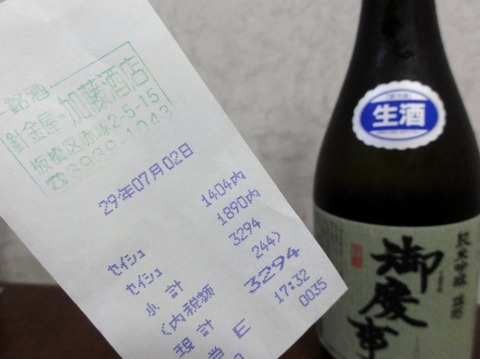 銘酒
加藤酒店
板橋区赤塚2-5-15
29年07月02日
セイシュ 1404内
セイシュ 1890内
小計 3294
(内税額 244)
現計 3294
17:32
0035
生酒
純米吟醸
御慶事